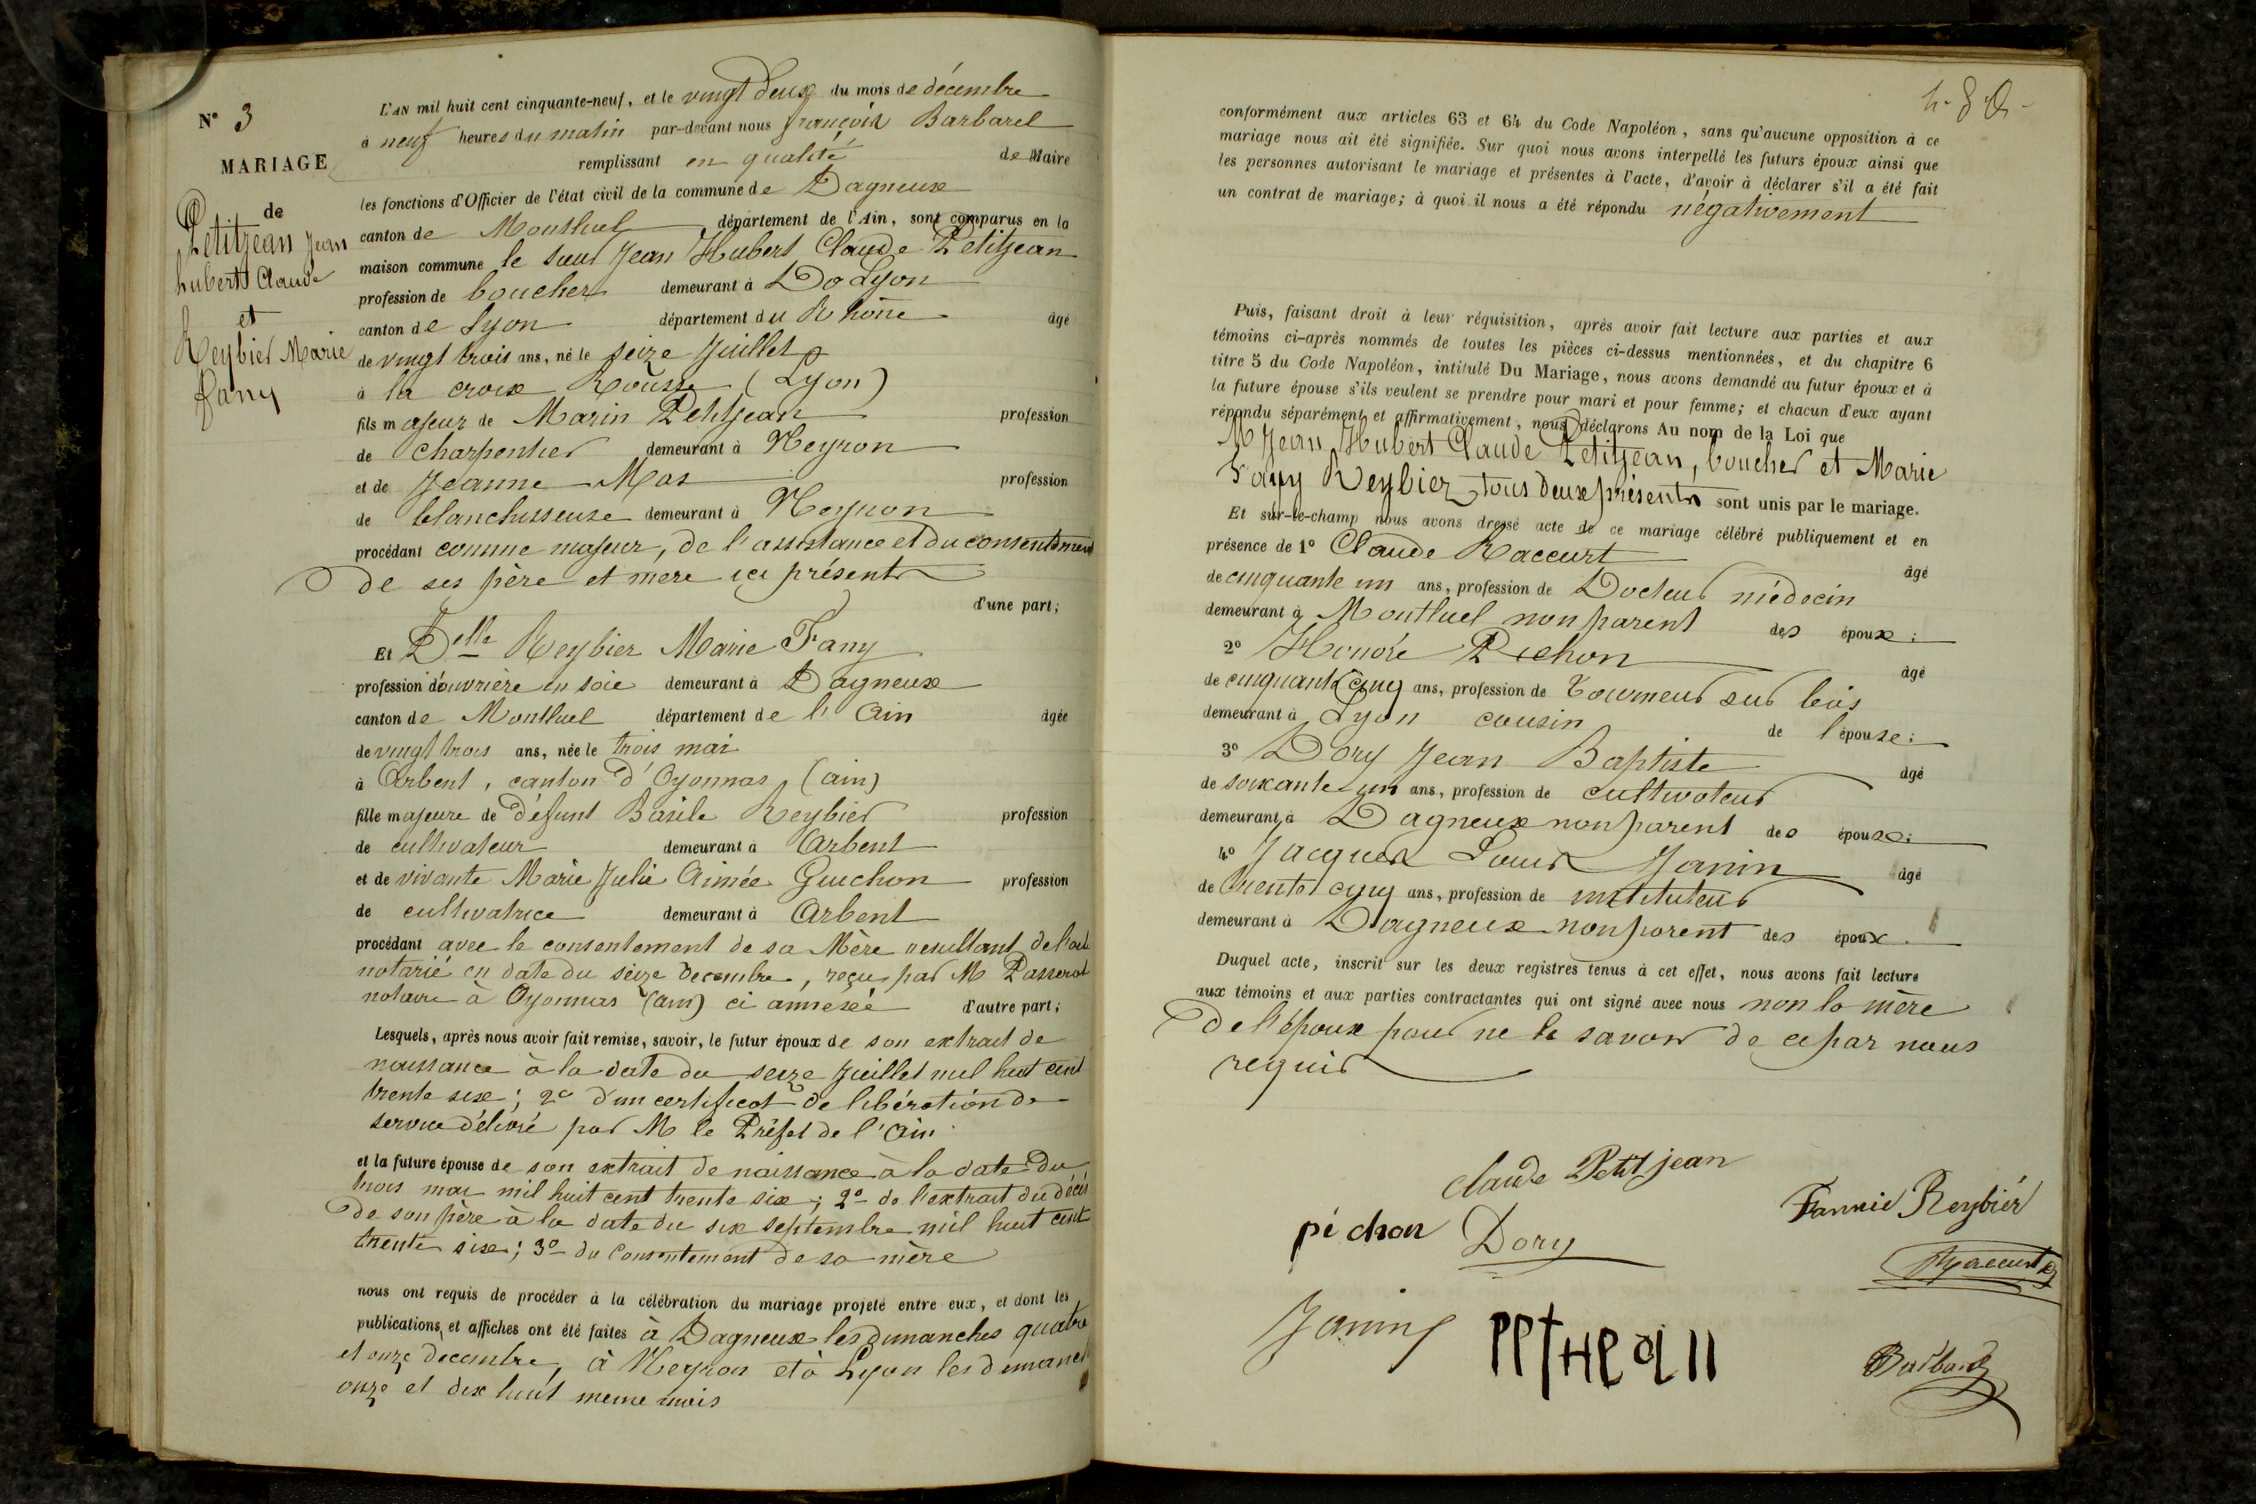 N° 3
MARIAGE
de
Petitjean Jean
hubert Claude
et
Reybier Marie
Fany
L'AN mil huit cent cinquante-neuf, et le vingt deux du mois de décembre
à neuf heures du matin par-devant nous françois Barbarel
remplissant en qualité de Maire
les fonctions d'Officier de l'état civil de la commune de Dagneux
canton de Montluel, département de l'Ain, sont comparus en la
maison commune le sieur Jean Hubert Claude Petitjean
profession de boucher demeurant à Do Lyon
canton de Lyon département du Rhône âgé
de vingt trois ans, né le seize Juillet
à la croix Rousse (Lyon)
fils majeur de Marin Petitjean profession
de charpentier demeurant à Neyron
et de Jeanne Mas profession
de blanchisseuse demeurant à Neyron
procédant comme majeur, de l'assistance et du consentement
de ses père et mere ici présents
d'une part;
Et Delle Reybier Marie Fany
profession d'ouvrière en soie demeurant à Dagneux
canton de Montluel département de l'Ain âgée
de vingt trois ans, née le trois mai
à Arbent, canton d'Oyonnas, (ain)
fille majeure de défunt Basile Reybier profession
de cultivateur demeurant à Arbent
et de vivante Marie Julie Aimée Guichon profession
de cultivatrice demeurant à Arbent
procédant avec le consentement de sa Mère resultant de l'acte
notarié en date du seize decembre, reçu par M Passerat
notaire à Oyonnas (ain) ci annexée d'autre part;
Lesquels, après nous avoir fait remise, savoir, le futur époux de son extrait de
naissance à la date du seize Juillet mil huit cent
trente six; 2° d'un certificat de libération de
service délivré par M le Préfet de l'Ain
et la future épouse de son extrait de naissance à la date du
trois mai mil huit cent trente six; 2° de l'extrait du décès
de son père à la date du six septembre mil huit cent
trente six; 3° du Consentement de sa mère
nous ont requis de procéder à la célébration du mariage projeté entre eux, et dont les
publications et affiches ont été faites à Dagneux les dimanches quatre
et onze decembre, à Neyron et à Lyon les dimanches
onze et dix huit meme mois
conformément aux articles 63 et 64 du Code Napoléon, sans qu'aucune opposition à ce
mariage nous ait été signifiée. Sur quoi nous avons interpellé les futurs époux ainsi que
les personnes autorisant le mariage et présentes à l'acte, d'avoir à déclarer s'il a été fait
un contrat de mariage; à quoi il nous a été répondu négativement
Puis, faisant droit à leur réquisition, après avoir fait lecture aux parties et aux
témoins ci-après nommés de toutes les pièces ci-dessus mentionnées, et du chapitre 6
titre 5 du Code Napoléon, intitulé Du Mariage, nous avons demandé au futur époux et à
la future épouse s'ils veulent se prendre pour mari et pour femme; et chacun d'eux ayant
répondu séparément et affirmativement, nous déclarons Au nom de la Loi que
M Jean Hubert Claude Petitjean, boucher et Marie
Fany Reybier, tous deux présents sont unis par le mariage.
Et sur-le-champ nous avons dressé acte de ce mariage célébré publiquement et en
présence de 1° Claude Raccurt âgé
de cinquante un ans, profession de Docteur médecin
demeurant à Montluel non parent des époux;
2° Honoré Pichon âgé
de cinquante cinq ans, profession de Tourneur sur bois
demeurant à Lyon cousin de l'épouse;
3° Dory Jean Baptiste âgé
de soixante un ans, profession de cultivateur
demeurant à Dagneux non parent des époux;
4° Jacques Louis Janin âgé
de trente cinq ans, profession de instituteur
demeurant à Dagneux non parent des époux.
Duquel acte, inscrit sur les deux registres tenus à cet effet, nous avons fait lecture
aux témoins et aux parties contractantes qui ont signé avec nous non la mère
de l'époux pour ne le savoir de ce par nous
requis
claude Petitjean
Fannie Reybier
pichon
Dory
Raccurt
Janin
Barbarel